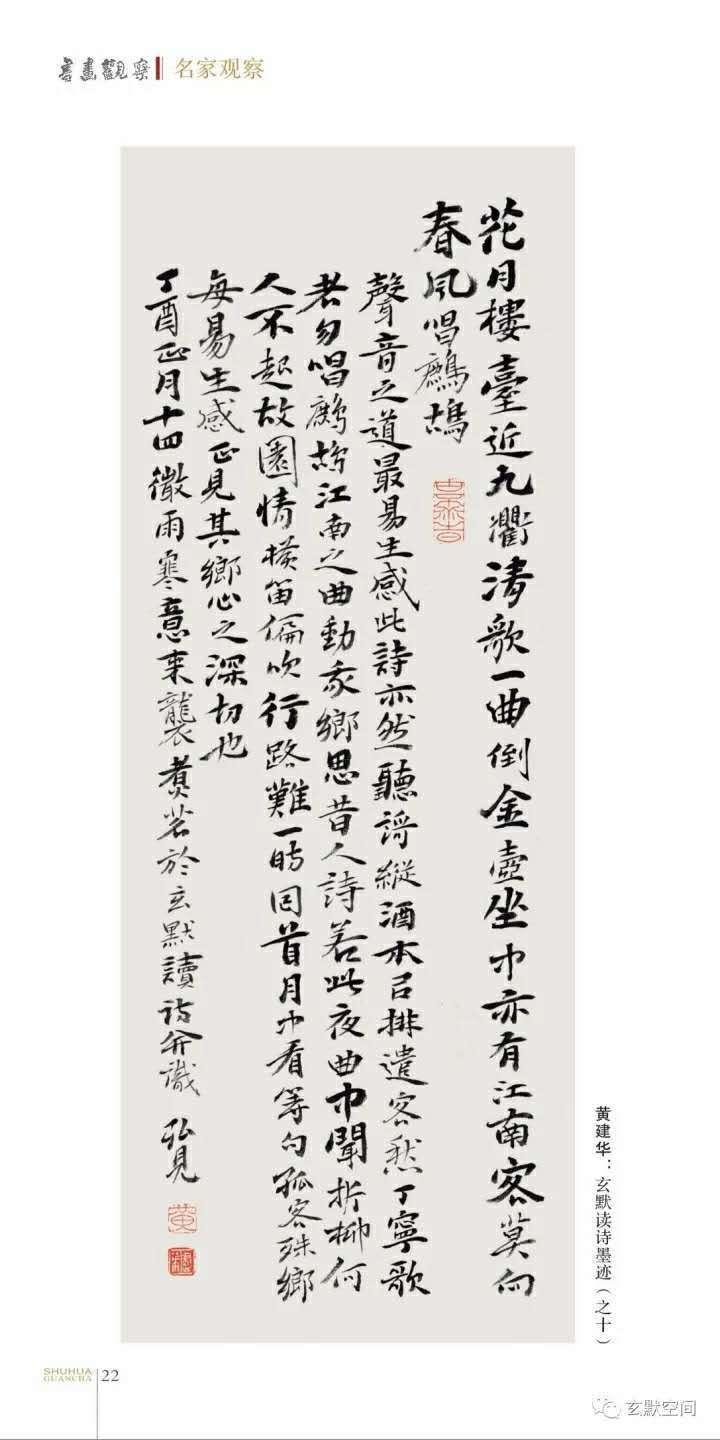 書畫觀察 名家观察
花月樓臺近九衢清歌一曲倒金壺坐中亦有江南客莫向
春風唱鷓鴣
聲音之道最易生感此詩亦然聽謌縱酒本以排遣客愁丁寧歌
者勿唱鷓鴣江南之曲動我鄉思昔人詩若此夜曲中聞折柳何
人不起故園情橫笛偏吹行路難一時回首月中看等句孤客殊鄉
每易生感正見其鄉心之深切也
丁酉正月十四微雨寒意来襲煮茗於玄默讀詩并識 弘見
黄建华：玄默读诗墨迹（之十）
SHUHUA
GUANCHA
22
玄默空间